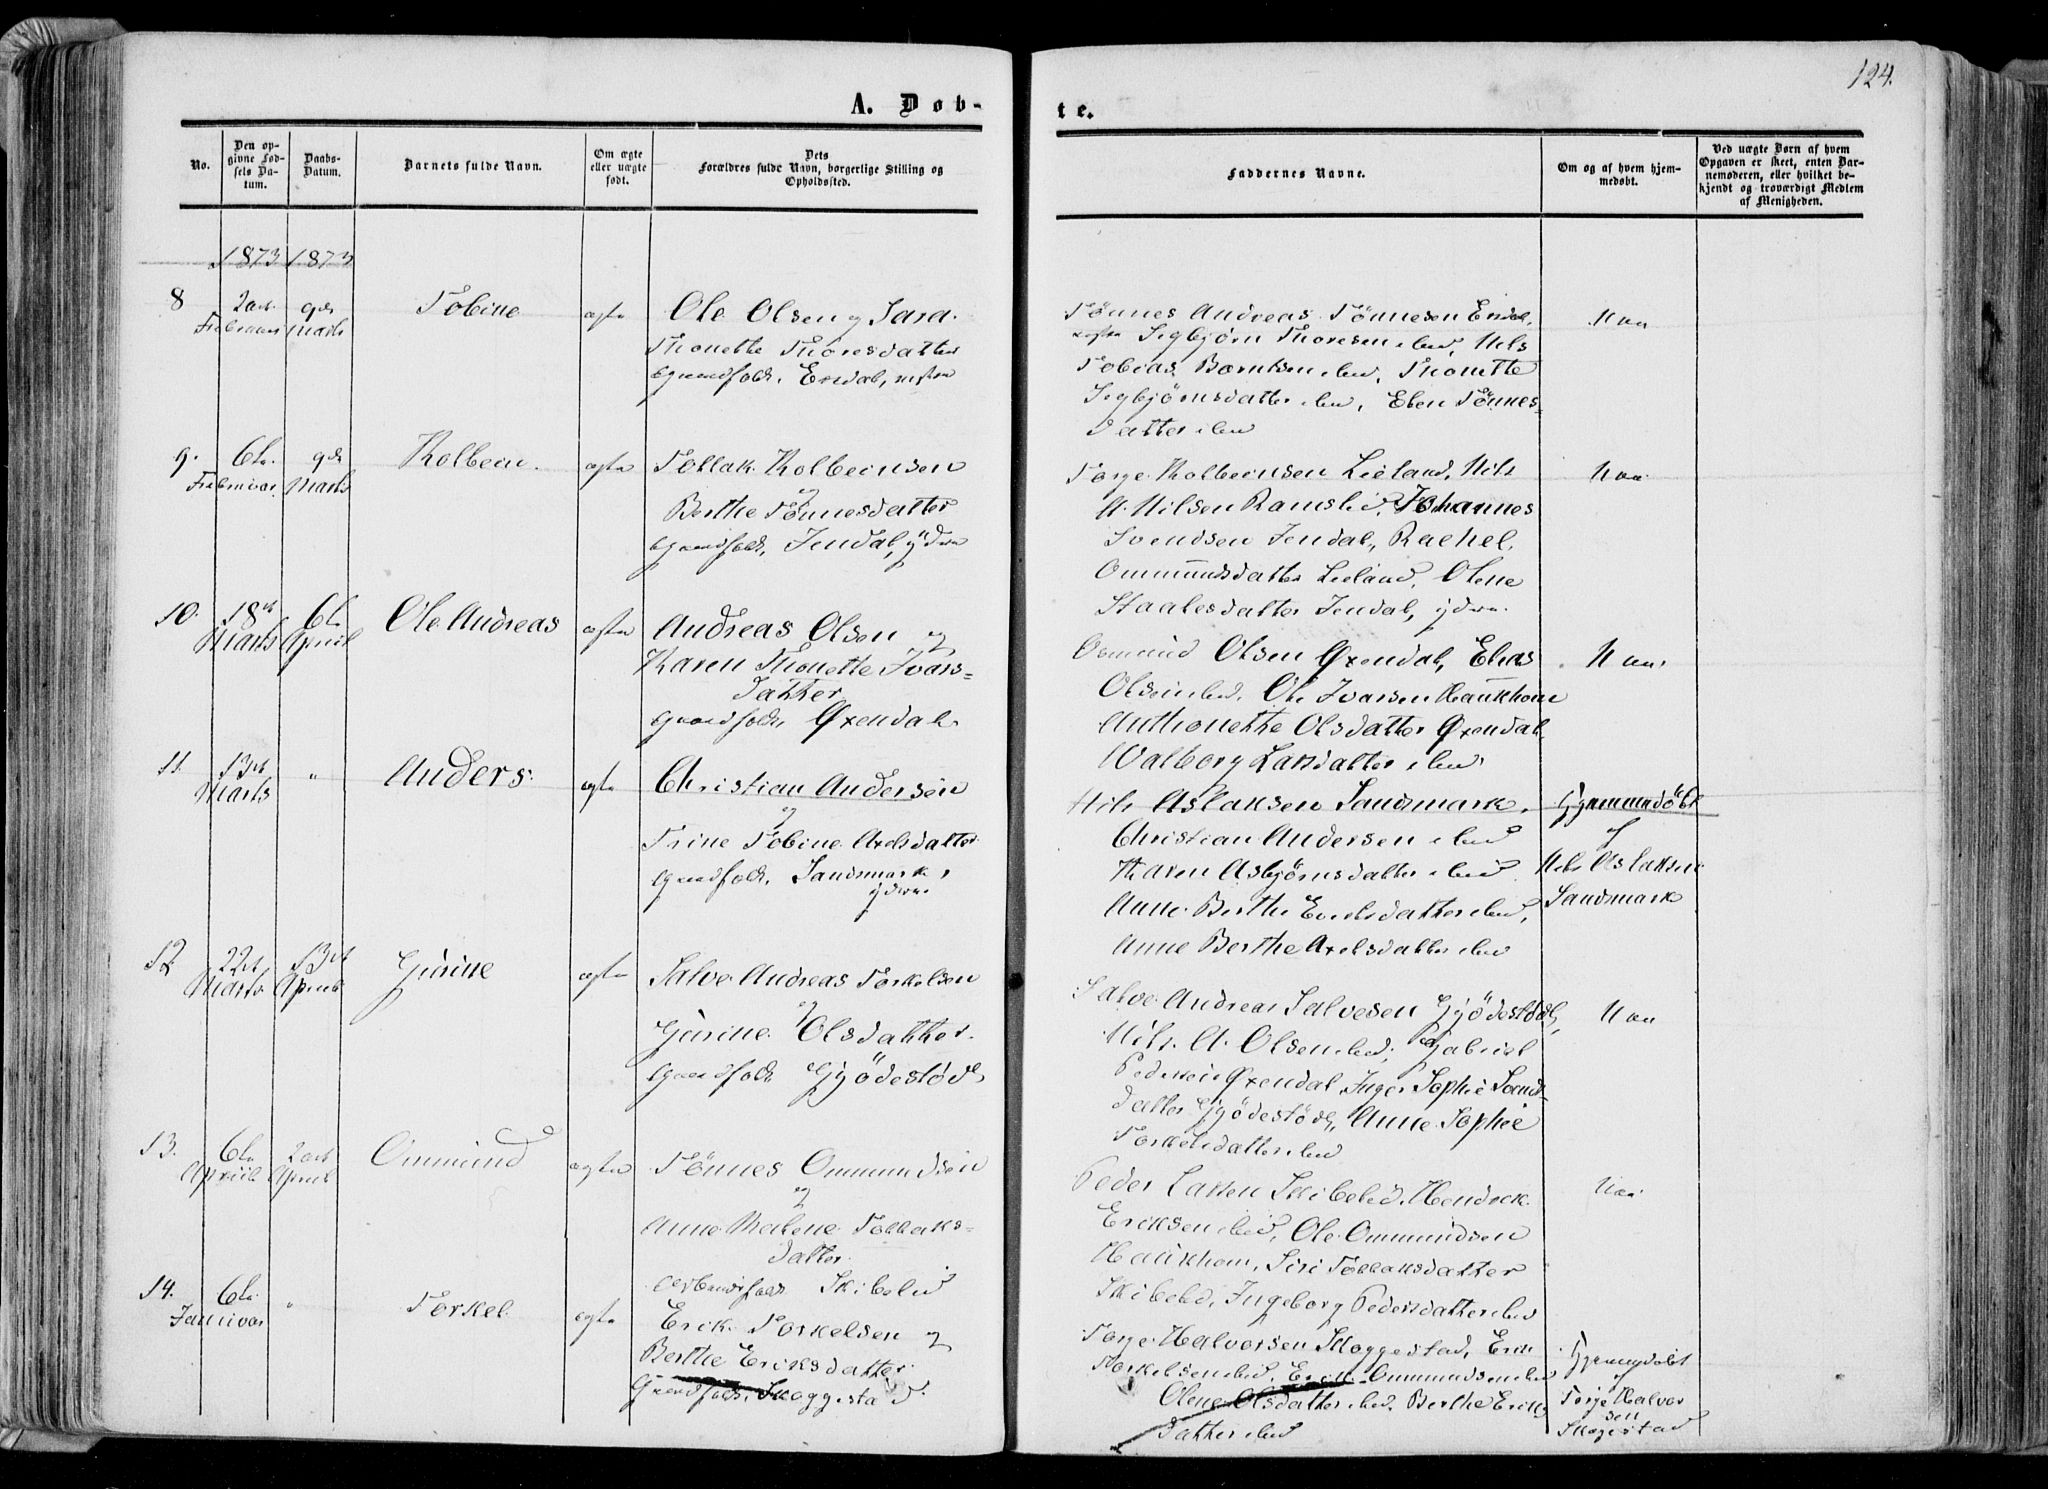 124.
A. Døb-
te.
No.
Den op-
givne Fød-
sels Da-
tum.
Daabs-
Datum.
Barnets fulde Navn.
Om ægte
eller uægte
født.
Dets
Forældres fulde Navn, borgerlige Stilling og
Opholdssted.
Faddernes Navne.
Om og af hvem hjem-
medøbt.
Ved uægte Børn af hvem
Opgaven er skeet, enten Bar-
nemoderen, eller hvilket be-
kjendt og troværdigt Medlem
af Menigheden.
1873 1873
8
Februar
Marts
Tobine
Ole Olsen og Sara
Thonette Thoresdatter
Eiedal,
Tönnes Andreas Tönnesen
Segbjörn Thoresen ibid, Nils
Tobias Berntsen ibid, Thonette
Segbjörnsdatter ibid, Elen Tönnes-
datter ibid
9.
6te
Februar
Marts
Kolbein.
ægte
Tollak Kolbeinsen
og
Berthe Tönnesdatter
Jendal, ydre
Torge Kolbeinsen Lieland, Nils
A. Nilsen Ramslid, Johannes
Svendsen Jendal, Rachel
Ommundsdatter Lieland, Olene
Staalesdatter Jendal, ydre
10.
18de
Marts
6te
April
Ole Andreas
ægte
Andreas Olsen og
Karen Thonette Ivars=
datter
Gaardfolk, Øxendal
Osmund Olsen Øxendal, Elias
Olsen ibid, Ole Ivarsen Haukhom
Anthonette Olsdatter Øxendal
Walborg Larsdatter ibid
11.
13de
Marts
"
Anders.
ægte
Christian Andersen
og
Trine Tobine Axelsdatter
Gaardfolk, Sandsmark,
ydre
Nils Aslaksen Sandsmark,
Christian Andersen ibid
Karen Asbjörnsdatter ibid
Anne Berthe ibid,
Anne Berthe Axelsdatter ibid
Hjemmedöbt
af
Nils Aslaksen
Sandsmark
12
22de
Marts
13de
April
Gurine
ægte
Salve Andreas Torkelsen
og
Gurine Olsdatter
Gaardfolk Gjödestöl,
Salve Andreas Salvesen Gjödestöl,
Nils A. Olsen ibid, Gabriel
Pedersen Øxendal, Inger Sophie
datter Gjödestöl, Anne Sophie
Torkelsdatter ibid
13.
6te
April
20de
April
Ommund
ægte
Tönnes Ommundsen
og
Anne Malene Tollaks=
datter
Arbeidsfolk Skibelid
Peder Larsen Skibelid, Hendrek
Eriksen ibid, Ole Ommundsen
Haukhom, Siri Tollaksdatter
Skibelid, Ingeborg Pedersdatter ibid
14.
6te
Januar
"
Torkel
ægte
Erik Torkelsen og
Berthe Eriksdatter
Gaardfolk, Skoggestad
Torge Halvorsen Skoggestad, Erik
Torkelsen ibid, Erik Ommundsen ibid
Olene Olsdatter ibid, Berthe Eriks
datter ibid
Hjemmedöbt
af
Torje Halvor
sen
Skogestad